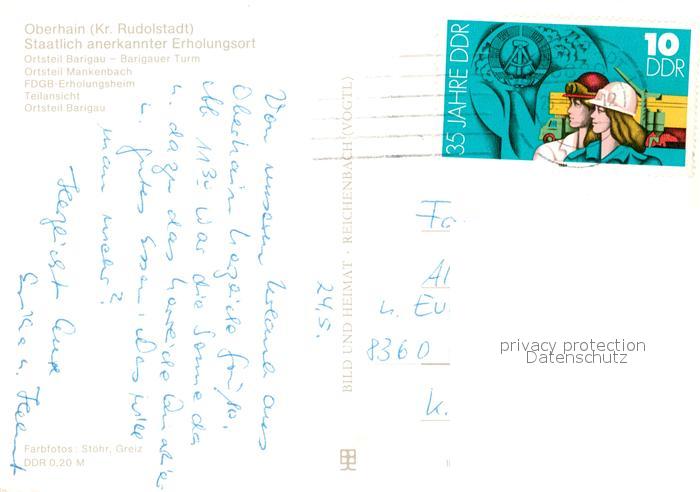 Oberhain (Kr. Rudolstadt)
Staatlich anerkannter Erholungsort
Ortsteil Barigau – Barigauer Turm
Ortsteil Mankenbach
FDGB-Erholungsheim
Teilansicht
Ortsteil Barigau
35 JAHRE DDR
10
DDR
24.5.
Von unserem Urlaub aus
Oberhain herzliche Grüße.
Ab 11.5. war die Sonne da
u. dazu das herrliche Quartier
u. gutes Essen. Was will
man mehr?
Herzlichst Eure
u. Helmut
BILD UND HEIMAT · REICHENBACH (VOGTL)
Fa
Al
u. Eu
8360
K.
privacy protection
Datenschutz
Farbfotos: Stöhr, Greiz
DDR 0,20 M